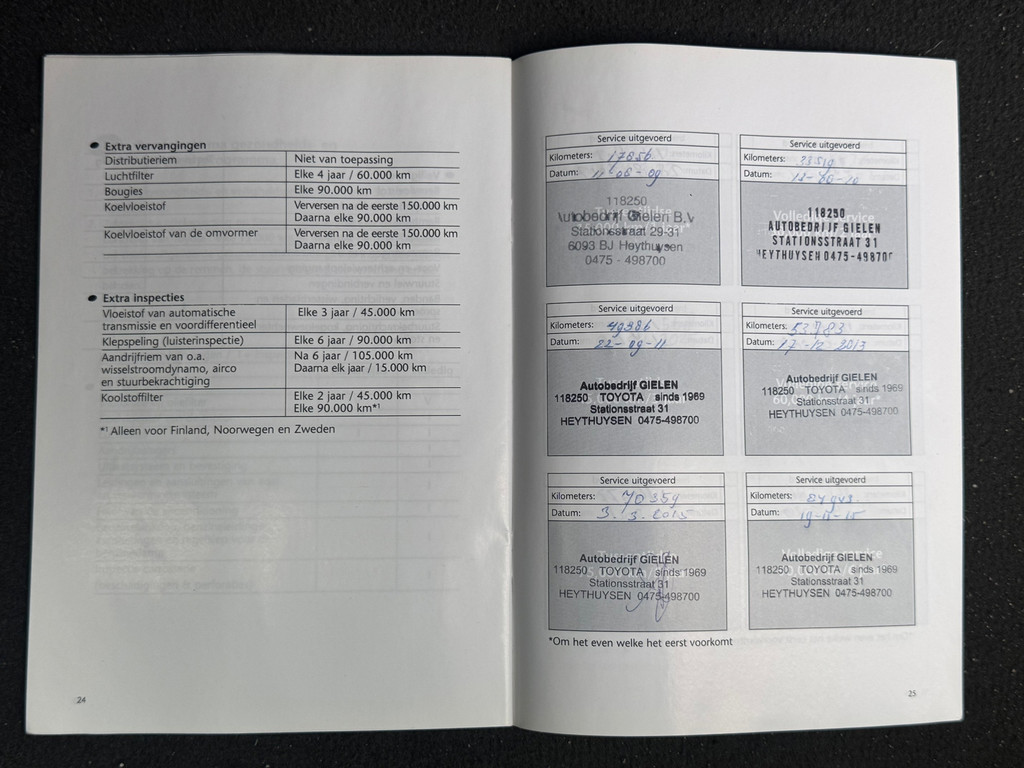 ● Extra vervangingen
Distributieriem Niet van toepassing
Luchtfilter Elke 4 jaar / 60.000 km
Bougies Elke 90.000 km
Koelvloeistof Verversen na de eerste 150.000 km
Daarna elke 90.000 km
Koelvloeistof van de omvormer Verversen na de eerste 150.000 km
Daarna elke 90.000 km
● Extra inspecties
Vloeistof van automatische
transmissie en voordifferentieel Elke 3 jaar / 45.000 km
Klepspeling (luisterinspectie) Elke 6 jaar / 90.000 km
Aandrijfriem van o.a.
wisselstroomdynamo, airco
en stuurbekrachtiging Na 6 jaar / 105.000 km
Daarna elk jaar / 15.000 km
Koolstoffilter Elke 2 jaar / 45.000 km
Elke 90.000 km*1
*1 Alleen voor Finland, Noorwegen en Zweden
24
Service uitgevoerd
Kilometers: 17856
Datum: 11-08-09
118250
Autobedrijf Gielen B.V
Stationsstraat 29-31
6093 BJ Heythuysen
0475 - 498700
Service uitgevoerd
Kilometers:
Datum:
118250
AUTOBEDRIJF GIELEN
STATIONSSTRAAT 31
HEYTHUYSEN 0475-498700
Service uitgevoerd
Kilometers: 49386
Datum: 22-09-11
Autobedrijf GIELEN
118250 TOYOTA sinds 1969
Stationsstraat 31
HEYTHUYSEN 0475-498700
Service uitgevoerd
Kilometers: 53783
Datum: 17-12 2013
Autobedrijf GIELEN
118250 TOYOTA sinds 1969
Stationsstraat 31
HEYTHUYSEN 0475-498700
Service uitgevoerd
Kilometers: 70359
Datum: 3.3.2015
Autobedrijf GIELEN
118250 TOYOTA sinds 1969
Stationsstraat 31
HEYTHUYSEN 0475-498700
Service uitgevoerd
Kilometers:
Datum:
Autobedrijf GIELEN
118250 TOYOTA sinds 1969
Stationsstraat 31
HEYTHUYSEN 0475-498700
*Om het even welke het eerst voorkomt
25